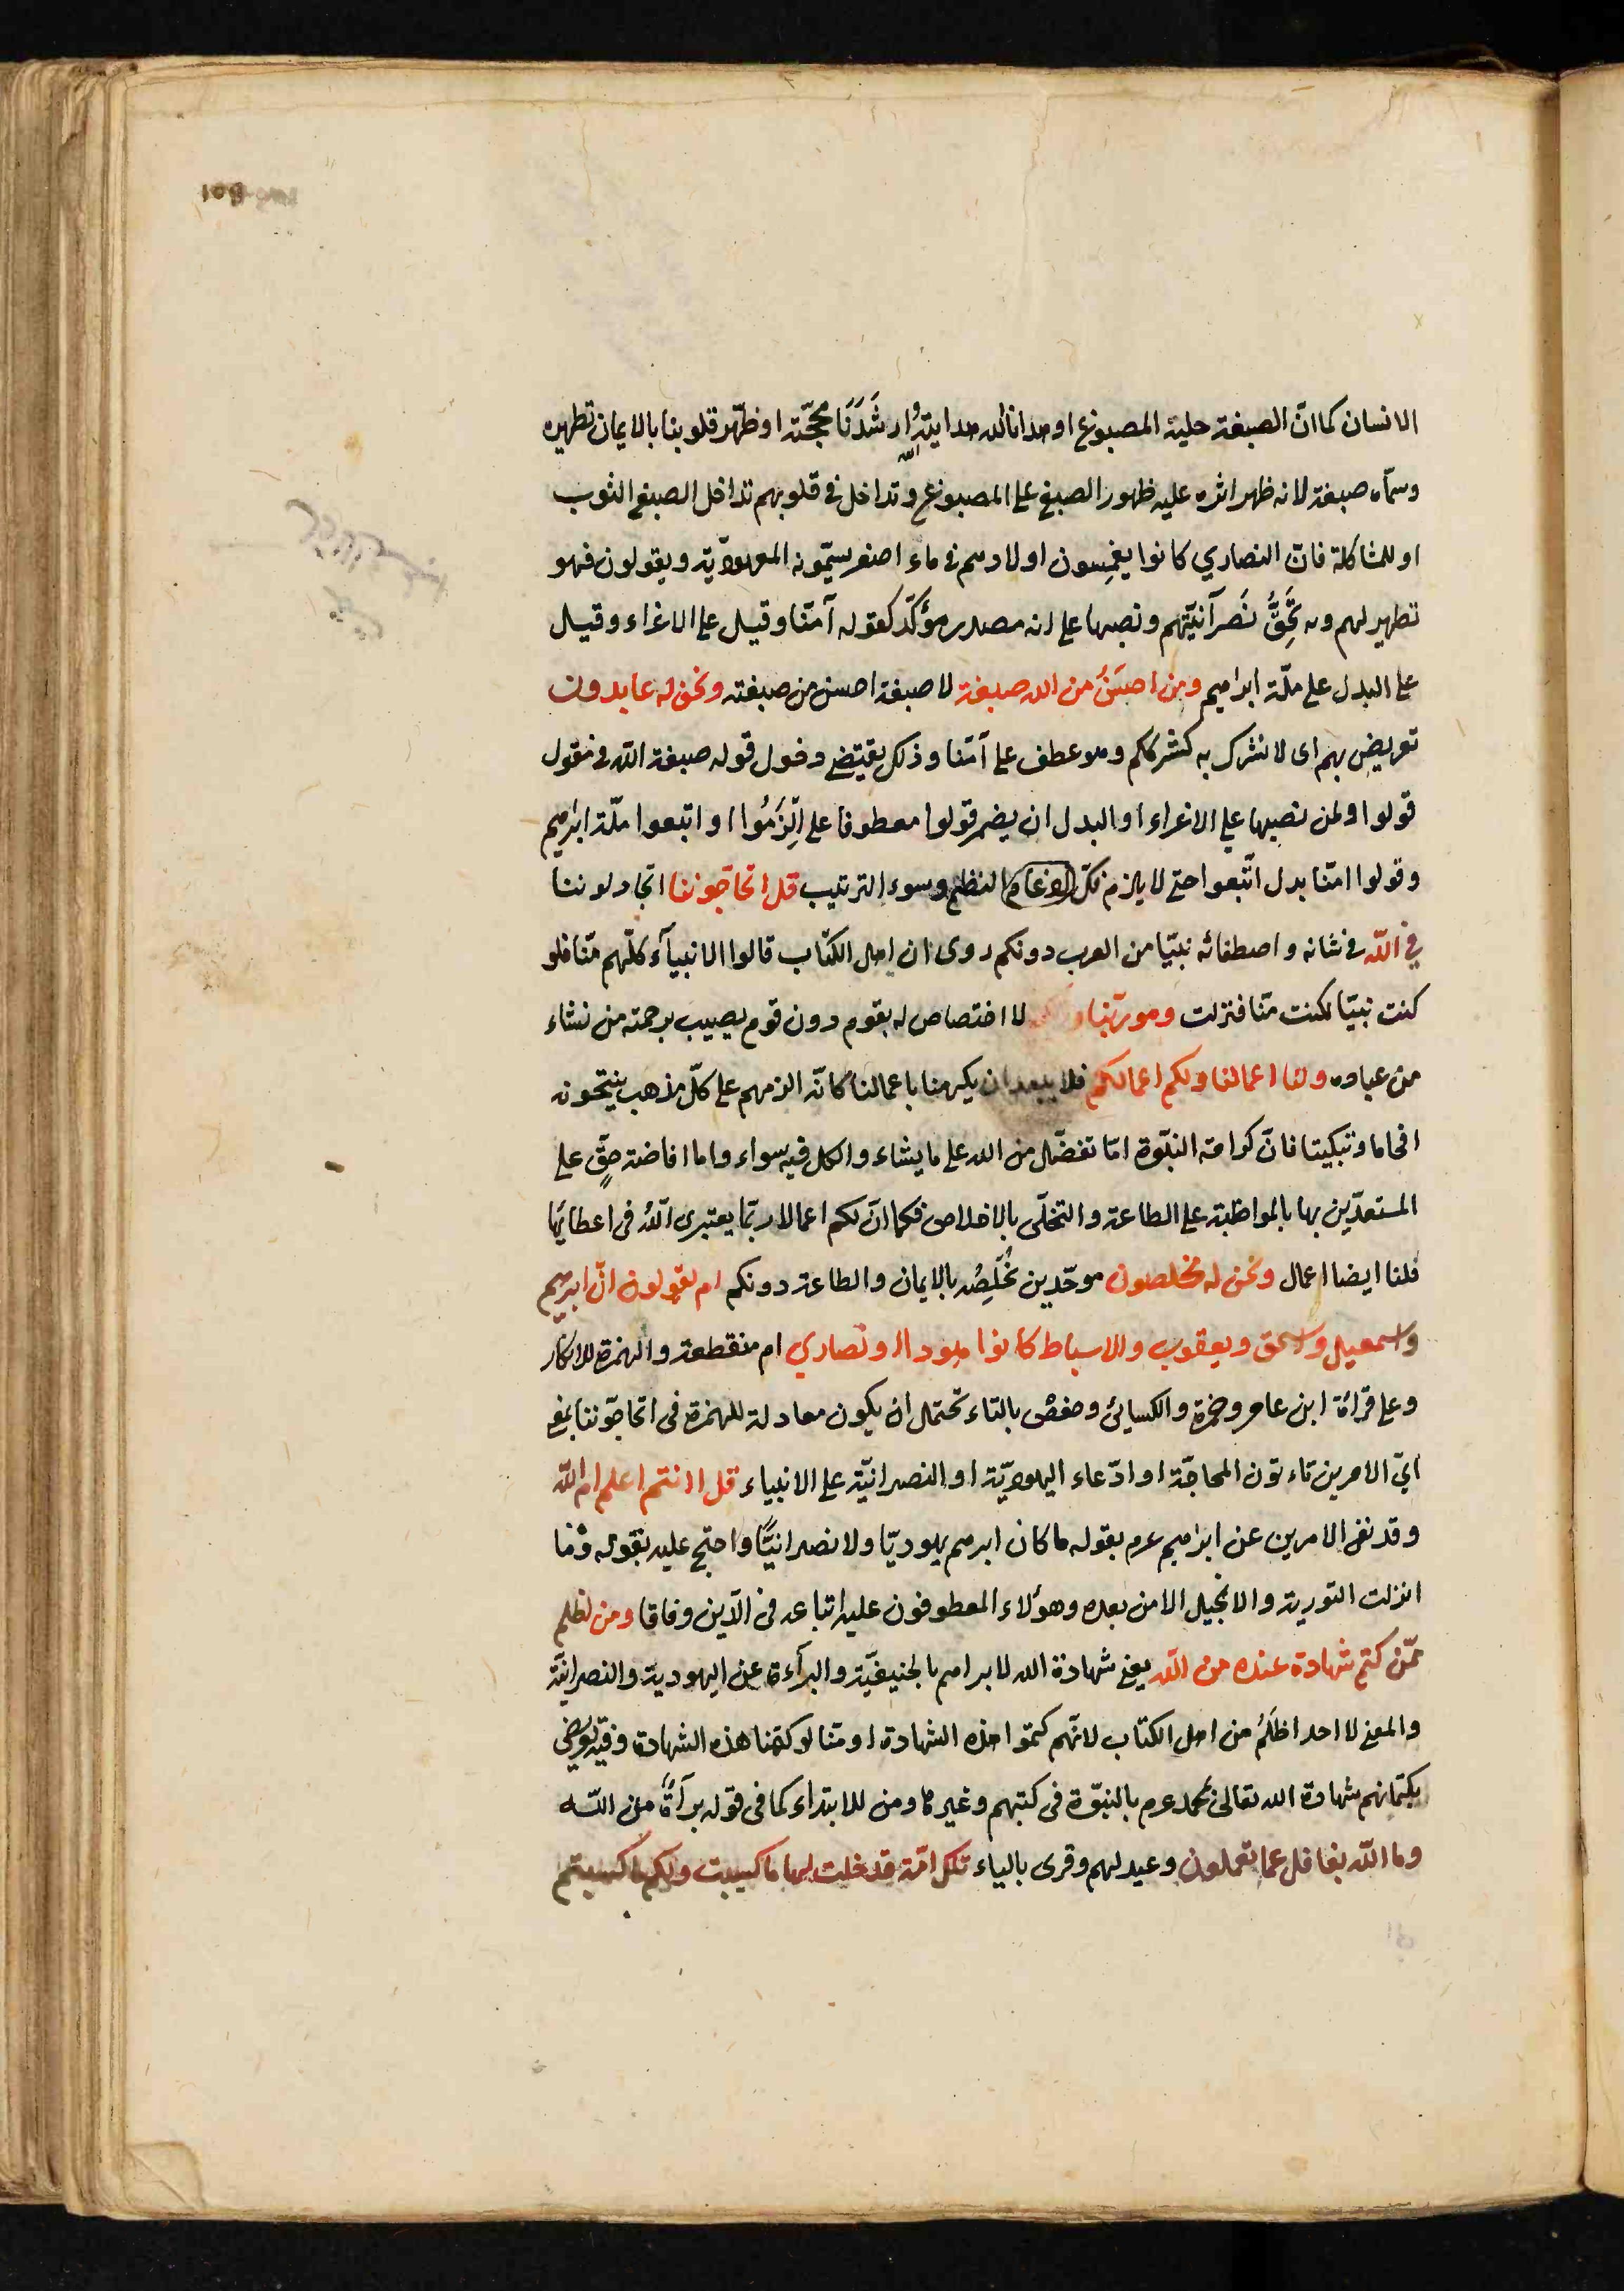 الانسان كما انّ الصبغة حلية المصبوغ او هدانا الله هدايته وارشَدَنَا بحجّته او طهّر قلوبنا بالايمان تطهيره
وسمّاه صبغة لانه ظهر اثره عليه ظهور الصبغ على المصبوغ وتداخل فى قلوبهم تداخل الصبغ الثوب
او للمشاكلة فانّ النصاري كانوا يغمِسون اولادهم فى ماء اصفر يسمّونه المعموديّة ويقولون فهو
تطهير لهم وبه تَحِقُّ نَصرآنيّتهم ونصبها على انه مصدر مؤكّد كقوله آمنّا وقيل على الاغراء وقيل
على البدل على ملّة ابراهيم ومن احسَنُ من الله صبغة لا صبغة احسن من صبغته ونحن له عابدون
تعريض بهم اى لا نشرك به كشرككم وهو عطف على آمنّا وذلك يقتضي دخول قوله صبغة اللّه فى مفعول
قولوا ولمن نصبها على الاغراء او البدل ان يضمر قولوا معطوفا على اِلْزَمُوا او اتبعوا ملّة ابراهيم
وقولوا امنّا بدل اتّبعوا حتى لا يلزم فكّ الادغام النظم وسوء الترتيب قل اتحاجّوننا اتجادلوننا
فى اللّه فى شانه واصطفائه نبيّا من العرب دونكم روى ان اهل الكتاب قالوا الانبيآء كلّهم منّا فلو
كنت نبيّا لكنت منّا فنزلت وهو ربّنا لا اختصاص له بقوم دون قوم يصيب برحمته من نشاء
من عباده ولنا اعمالنا ولكم اعمالكم فلا يبعد ان يكرمنا باعمالنا كانّه الزمهم على كلّ مذهب ينتحونه
افحاما وتبكيتا فانّ كرامة النبوّة امّا تفضّل من الله على ما يشاء والكل فيه سواء واما افاضة حقٍّ على
المستعدّين بها بالمواظبة على الطاعة والتحلّى بالاخلاص فكما انّ لكم اعمالا ربّما يعتبرى اللّه فى اعطائها
فلنا ايضا اعمال ونحن له مخلصون موحّدين نُخْلِصُه بالايمان والطاعة دونكم ام تقولون انّ ابرهيم
واسمعيل واسحق ويعقوب والاسباط كانوا هودا او نصاري ام منقطعة والهمزة للانكار
وعلى قرائة ابن عامر وحمزة والكسائىّ وحفص بالتاء تحتمل ان يكون معادلة للهمزة فى اتحاجّوننا بمعنى
ايّ الامرين تاءتون المحاجّة او ادّعاء اليهوديّة او النصرانيّة على الانبياء قل اانتم اعلم ام اللّه
وقد نفى الامرين عن ابراهيم عم بقوله ما كان ابرهيم يهوديّا ولا نصرانيًّا واحتج عليه بقوله وما
انزلت التورية والانجيل الا من بعده وهؤلاء المعطوفون عليه اتباعه فى الدّين وفاقا ومن اظلم
ممّن كتم شهادة عنده من اللّه يعنى شهادة الله لابراهيم بالحنيفيّة والبرآءة عن اليهودية والنصرانيّة
والمعنى لا احد اظلَمُ من اهل الكتاب لانّهم كتموا هذه الشهادة او منّا لو كتمنا هذه الشهادة وفيه تعريض
بكتمانهم شهادة الله تعالى لمحمد عم بالنبوّة فى كتبهم وغيرها ومن للابتداء كما فى قوله برآءةٌ من اللّه
وما اللّه بغافل عما تعملون وعيد لهم وقرى بالياء تلك امّة قد خلت لها ما كسبت ولكم ما كسبتم